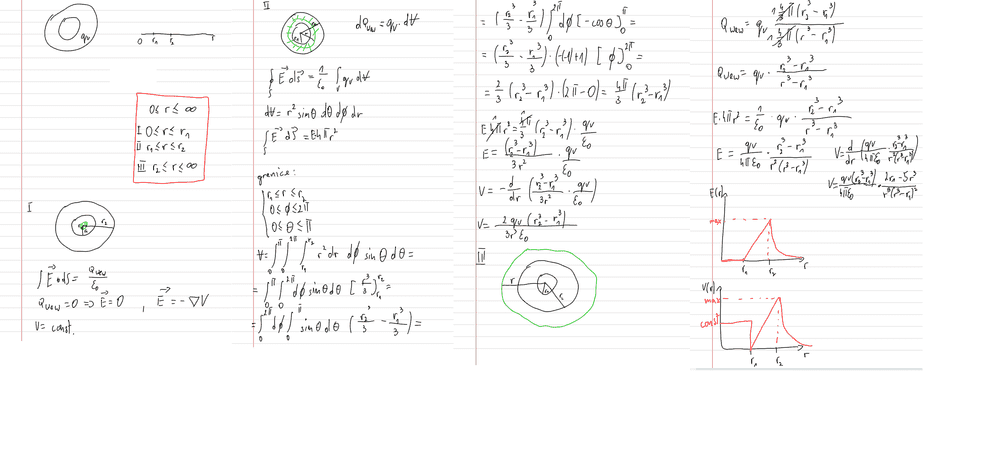 qᵥ
0 r₁ r₂ r
0 ≤ r ≤ ∞
I 0 ≤ r ≤ r₁
II r₁ ≤ r ≤ r₂
III r₂ ≤ r ≤ ∞
I
r₁ r₂
∫ E⃗ ∘ dS⃗ = Q_uew / ε₀
Q_uew = 0 ⇒ E⃗ = 0 , E⃗ = -∇V
V = const.
II
dQ_uew = qᵥ · dV
∮ E⃗ dS⃗ = 1/ε₀ ∫ qᵥ dV
dV = r² sinθ dθ dϕ dr
∫ E⃗ dS⃗ = E 4π r²
granice:
r₁ ≤ r ≤ r₂
0 ≤ ϕ ≤ 2π
0 ≤ θ ≤ π
V = ∫₀^π ∫₀^2π ∫_r₁^r₂ r² dr dϕ sinθ dθ =
= ∫₀^π ∫₀^2π dϕ sinθ dθ [r³/3]_r₁^r₂ =
= ∫₀^2π dϕ ∫₀^π sinθ dθ (r₂³/3 - r₁³/3) =
= (r₂³/3 - r₁³/3) ∫₀^2π dϕ [-cosθ]₀^π =
= (r₂³/3 - r₁³/3) · (-(-1)+1) [ϕ]₀^2π =
= 2/3 (r₂³ - r₁³) · (2π - 0) = 4π/3 (r₂³ - r₁³)
E 4π r² = 4π/3 (r₂³ - r₁³) · qᵥ/ε₀
E = (r₂³ - r₁³)/3r² · qᵥ/ε₀
V = - d/dr (r₂³ - r₁³/3r² · qᵥ/ε₀)
V = 2 qᵥ (r₂³ - r₁³)/3r³ ε₀
III
r r₁ r₂
Q_uew = qᵥ 4/3 π (r₂³ - r₁³) / 4/3 π (r³ - r₁³)
Q_uew = qᵥ · r₂³ - r₁³ / r³ - r₁³
E · 4π r² = 1/ε₀ · qᵥ · r₂³ - r₁³ / r³ - r₁³
E = qᵥ/4πε₀ · r₂³ - r₁³ / r²(r³ - r₁³) V = d/dr (qᵥ/4πε₀ · r₂³ - r₁³ / r²(r³ - r₁³))
E(r)
max
r₁ r₂ r
V(r)
max
const
r₁ r₂ r